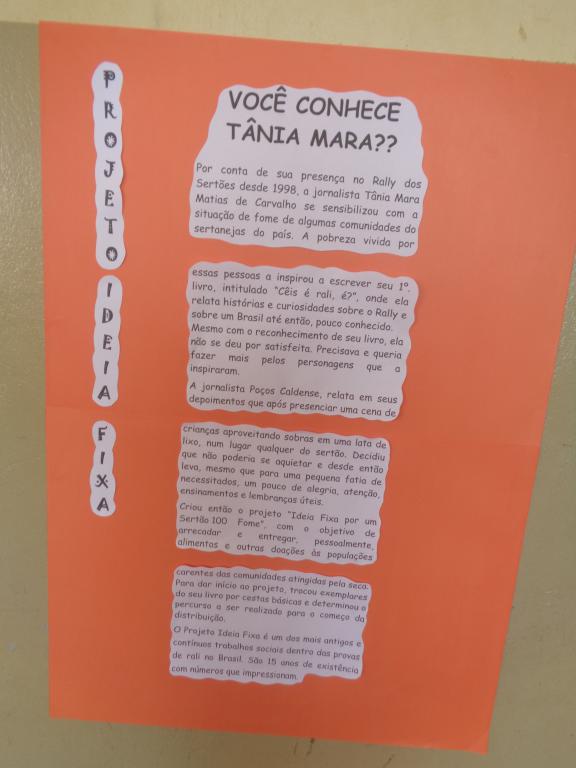 PROJETO
IDEIA
FIXA
VOCÊ CONHECE
TÂNIA MARA??
Por conta de sua presença no Rally dos
Sertões desde 1998, a jornalista Tânia Mara
Matias de Carvalho se sensibilizou com a
situação de fome de algumas comunidades do
sertanejas do país. A pobreza vivida por
essas pessoas a inspirou a escrever seu 1º.
livro, intitulado "Cêis é rali, é?", onde ela
relata histórias e curiosidades sobre o Rally e
sobre um Brasil até então, pouco conhecido.
Mesmo com o reconhecimento de seu livro, ela
não se deu por satisfeita. Precisava e queria
fazer mais pelos personagens que a
inspiraram.
A jornalista Poços Caldense, relata em seus
depoimentos que após presenciar uma cena de
crianças aproveitando sobras em uma lata de
lixo, num lugar qualquer do sertão. Decidiu
que não poderia se aquietar e desde então
leva, mesmo que para uma pequena fatia de
necessitados, um pouco de alegria, atenção,
ensinamentos e lembranças úteis.
Criou então o projeto "Ideia Fixa por um
Sertão 100 Fome", com o objetivo de
arrecadar e entregar, pessoalmente,
alimentos e outras doações às populações
carentes das comunidades atingidas pela seca.
Para dar início ao projeto, trocou exemplares
do seu livro por cestas básicas e determinou o
percurso a ser realizado para o começo da
distribuição.
O Projeto Ideia Fixa é um dos mais antigos e
contínuos trabalhos sociais dentro das provas
de rali no Brasil. São 15 anos de existência
com números que impressionam.